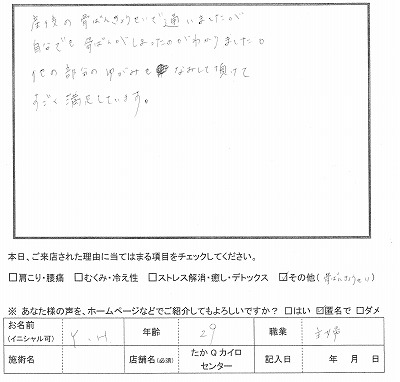 産後の骨ばんきょうせいで通いましたが
自分でも骨ばんがしまったのがわかりました。
他の部分のゆがみも なおして頂けて
すごく満足しています。
本日、ご来店された理由に当てはまる項目をチェックしてください。
□肩こり・腰痛 □むくみ・冷え性 □ストレス解消・癒し・デトックス ☑その他(骨ばんきょうせい)
※ あなた様の声を、ホームページなどでご紹介してもよろしいですか? □はい ☑匿名で □ダメ
お名前 (イニシャル可) Y.H 年齢 29 職業 主婦
施術名 店舗名(必須) たかQカイロセンター 記入日 年 月 日